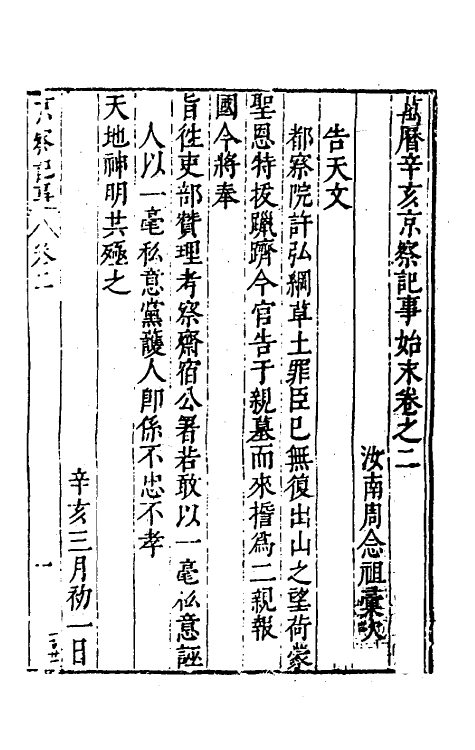 萬曆辛亥京察記事始末卷之二
汝南周念祖彙次
告天文
都察院許弘綱草土罪臣已無復出山之望荷蒙
聖恩特拔躐躋今官告于親墓而來揩為二親報
國今將奉
旨往吏部贊理考察齋宿公署若敢以一毫私意誣
人以一毫私意黨護人卽係不忠不孝
天地神明共殛之
辛亥三月初一日
京察記事 卷二
一